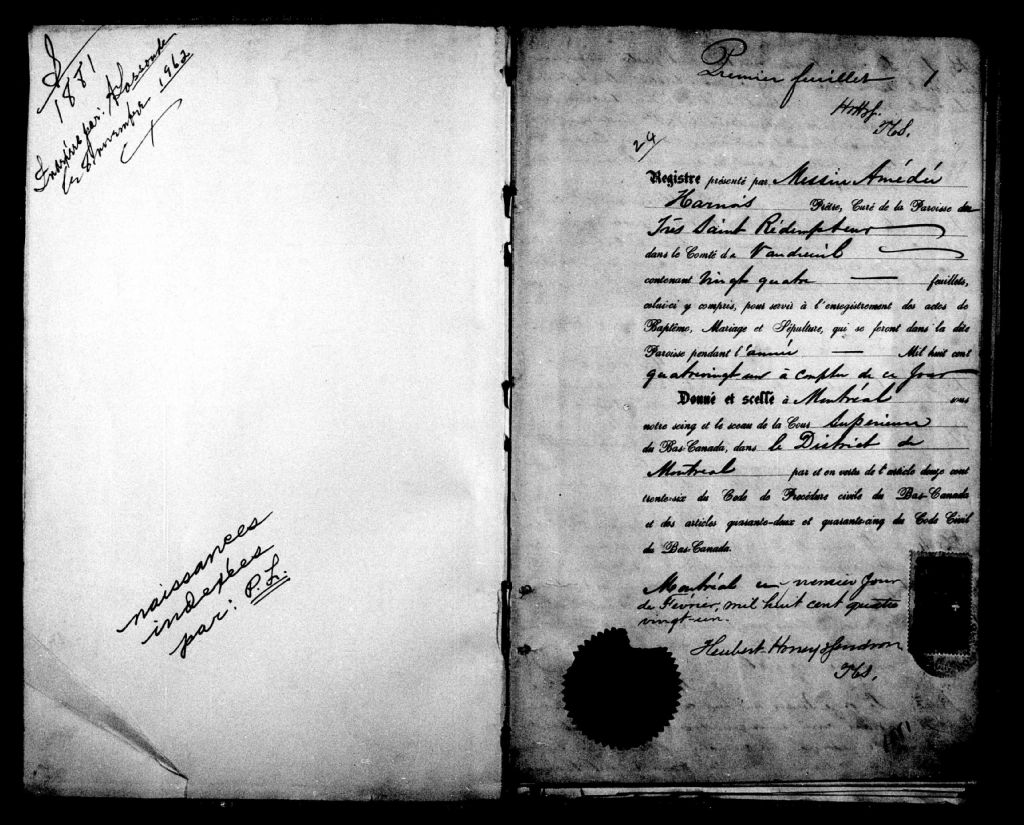 1881
par:
le 8 novembre 1962
naissances
indexées
par: P. L.
Premier feuillet 1
24
Registre présenté par Messire Amédée
Harnois Prêtre, Curé de la Paroisse du
Très Saint Rédempteur
dans le Comté de Vaudreuil
contenant vingt quatre — feuillets,
celui-ci y compris, pour servir à l'enregistrement des actes de
Baptême, Mariage et Sépulture, qui se feront dans la dite
Paroisse pendant l'année — Mil huit cent
quatrevingt-un à compter de ce jour
Donné et scellé à Montréal sous
notre seing et le sceau de la Cour Supérieure
du Bas-Canada, dans le District de
Montréal par et en vertu de l'article douze cent
trente-six du Code de Procédure civile du Bas-Canada
et des articles quarante-deux et quarante-cinq du Code Civil
du Bas-Canada.
Montréal ce premier jour
de Février, mil huit cent quatre
vingt-un.
1881